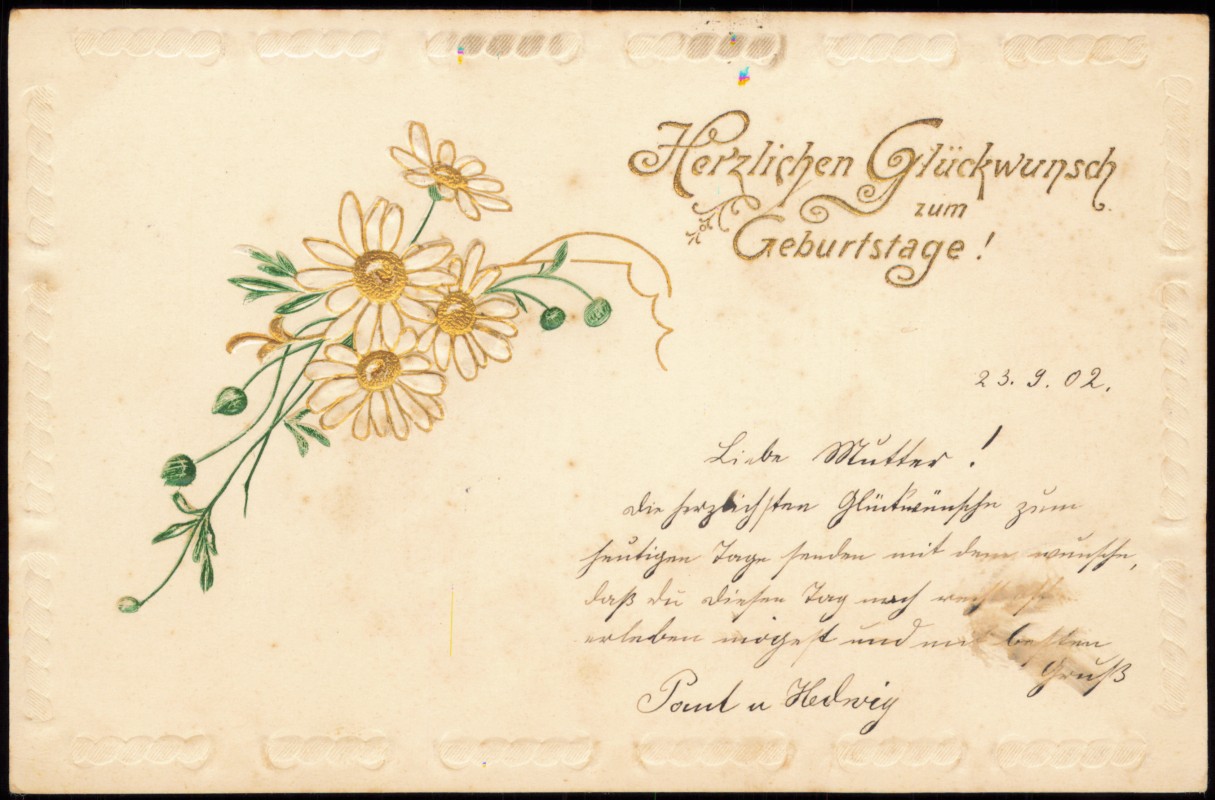 Herzlichen Glückwunsch
zum
Geburtstage!
23. 9. 02.
Liebe Mutter!
die herzlichsten Glückwünsche zum
heutigen Tage senden mit dem wunsche,
daß du diesen Tag noch recht oft
erleben mögest und mit besten
Gruß
Paul u Hedwig